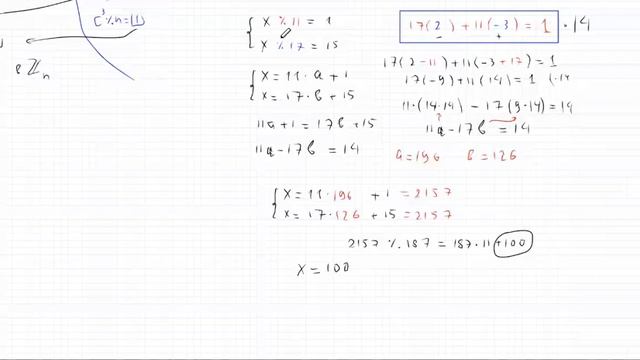 C³ % n = (1)
∈ ℤn
{ x % 11 = 1
x % 17 = 15
{ x = 11 · a + 1
x = 17 · b + 15
11a + 1 = 17b + 15
11a - 17b = 14
17(2) + 11(-3) = 1 · 14
17(2 - 11) + 11(-3 + 17) = 1
17(-9) + 11(14) = 1 (·14
11 · (14 · 14) - 17(9 · 14) = 14
11a - 17b = 14
a = 196 b = 126
{ x = 11 · 196 + 1 = 2157
x = 17 · 126 + 15 = 2157
2157 % 187 = 187 · 11 + 100
x = 100